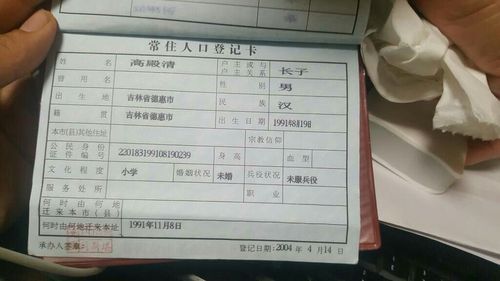 常住人口登记卡
姓名 高殿清 户主或与户主关系 长子
曾用名 性别 男
出生地 吉林省德惠市 民族 汉
籍贯 吉林省德惠市 出生日期 1991年8月19日
本市(县)其他住址 宗教信仰
公民身份证件编号 220183199108190239 身高 血型
文化程度 小学 婚姻状况 未婚 兵役状况 未服兵役
服务处所 职业
何时由何地迁来本市(县)
何时由何地迁来本址 1991年11月8日
承办人签章: 登记日期: 2004年4月14日